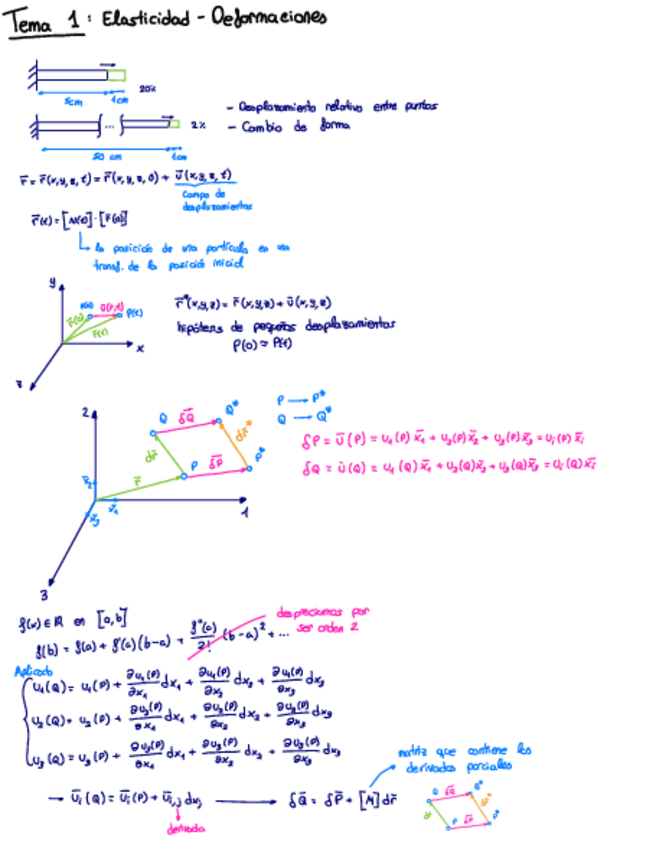 Tema 1: Elasticidad - Deformaciones
5cm 1cm 20%
- Desplazamiento relativo entre puntos
2% - Cambio de forma
50 cm 1cm
r̄ = r̄(x,y,z,t) = r̄(x,y,z,0) + ū(x,y,z,t)
Campo de
desplazamientos
r̄(t) = [M(t)]·[r̄(0)]
la posición de una partícula es una
transf. de la posición inicial
y
P(0) ū(P,t) P(t)
r̄(0) r̄(t)
x
z
r̄*(x,y,z) = r̄(x,y,z) + ū(x,y,z)
hipótesis de pequeños desplazamientos
P(0) ≈ P(t)
2
Q δQ̄ Q*
dr̄ dr̄*
P δP̄ P*
r̄
x̄₂ x̄₁ x̄₃
1
3
P → P*
Q → Q*
δP̄ = ū(P) = u₁(P) x̄₁ + u₂(P) x̄₂ + u₃(P) x̄₃ = uᵢ(P) x̄ᵢ
δQ̄ = ū(Q) = u₁(Q) x̄₁ + u₂(Q) x̄₂ + u₃(Q) x̄₃ = uᵢ(Q) x̄ᵢ
f(x) ∈ ℝ en [a,b]
despreciamos por
ser orden 2
f(b) = f(a) + f'(a)(b-a) + f''(a)/2! (b-a)² + ...
Aplicado
u₁(Q) = u₁(P) + ∂u₁(P)/∂x₁ dx₁ + ∂u₁(P)/∂x₂ dx₂ + ∂u₁(P)/∂x₃ dx₃
u₂(Q) = u₂(P) + ∂u₂(P)/∂x₁ dx₁ + ∂u₂(P)/∂x₂ dx₂ + ∂u₂(P)/∂x₃ dx₃
u₃(Q) = u₃(P) + ∂u₃(P)/∂x₁ dx₁ + ∂u₃(P)/∂x₂ dx₂ + ∂u₃(P)/∂x₃ dx₃
matriz que contiene las
derivadas parciales
→ ūᵢ(Q) = ūᵢ(P) + ūᵢ,ⱼ dxⱼ → δQ̄ = δP̄ + [M] dr̄
derivada
Q δQ̄ Q*
dr̄ dr̄*
P δP̄ P*